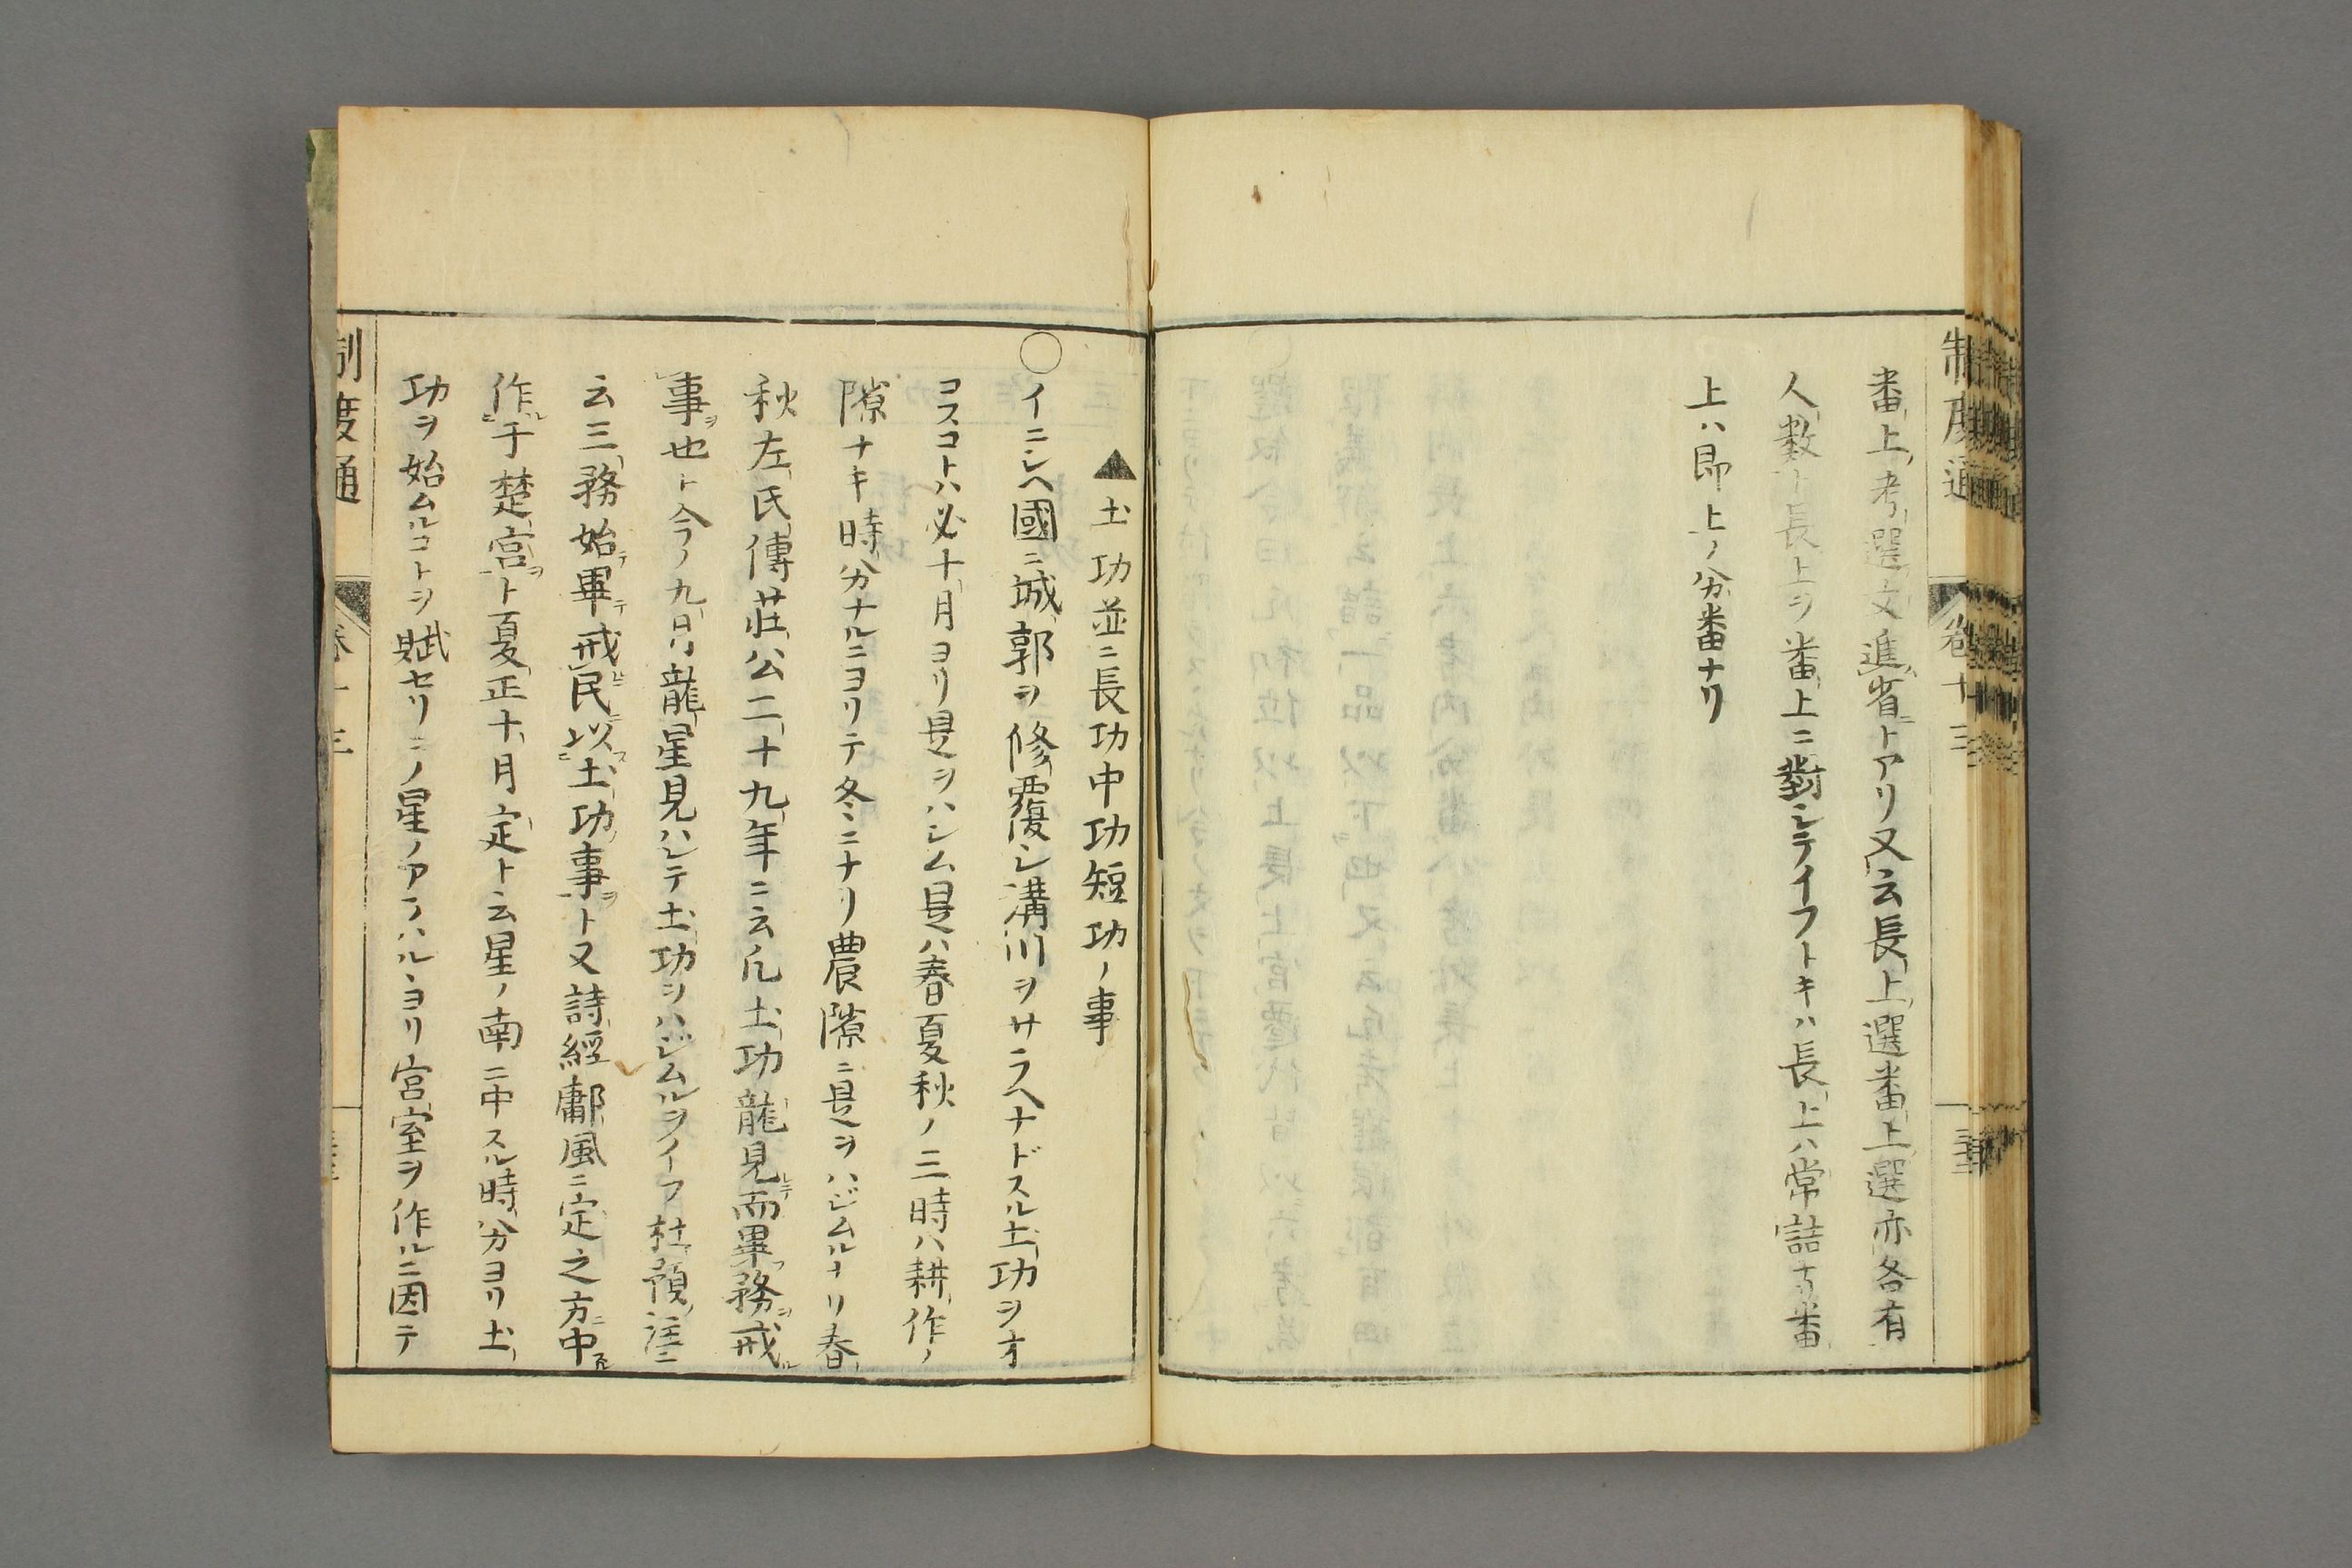 制度通 卷十三
番上考選文進省トアリ又云長上選番上選亦各有
人數ト長上ヲ番上ニ對シテイフトキハ長上ハ常詰ナリ番
上ハ即上ノ分番ナリ
▲土功並ニ長功中功短功ノ事
○イニシヘ國ニ城郭ヲ修覆シ溝川ヲサラヘナドスル土功ヲオ
コスコトハ必十月ヨリ是ヲハシム是ハ春夏秋ノ三時ハ耕作ノ
隙ナキ時分ナルニヨリテ冬ニナリ農隙ニ是ヲハジムルナリ春
秋左氏傳莊公二十九年ニ云凡土功龍見而畢務戒
事也ト今ノ九月龍星見ハレテ土功ヲハジムルヲイフ杜預注ニ
云三務始畢戒民以土功事ト又詩經鄘風ニ定之方中
作于楚宮ト夏正十月定ト云星ノ南ニ中スル時分ヨリ土
功ヲ始ムルコトヲ賦セリコノ星ノアラハルヽヨリ宮室ヲ作ルニ因テ
制度通 卷十三